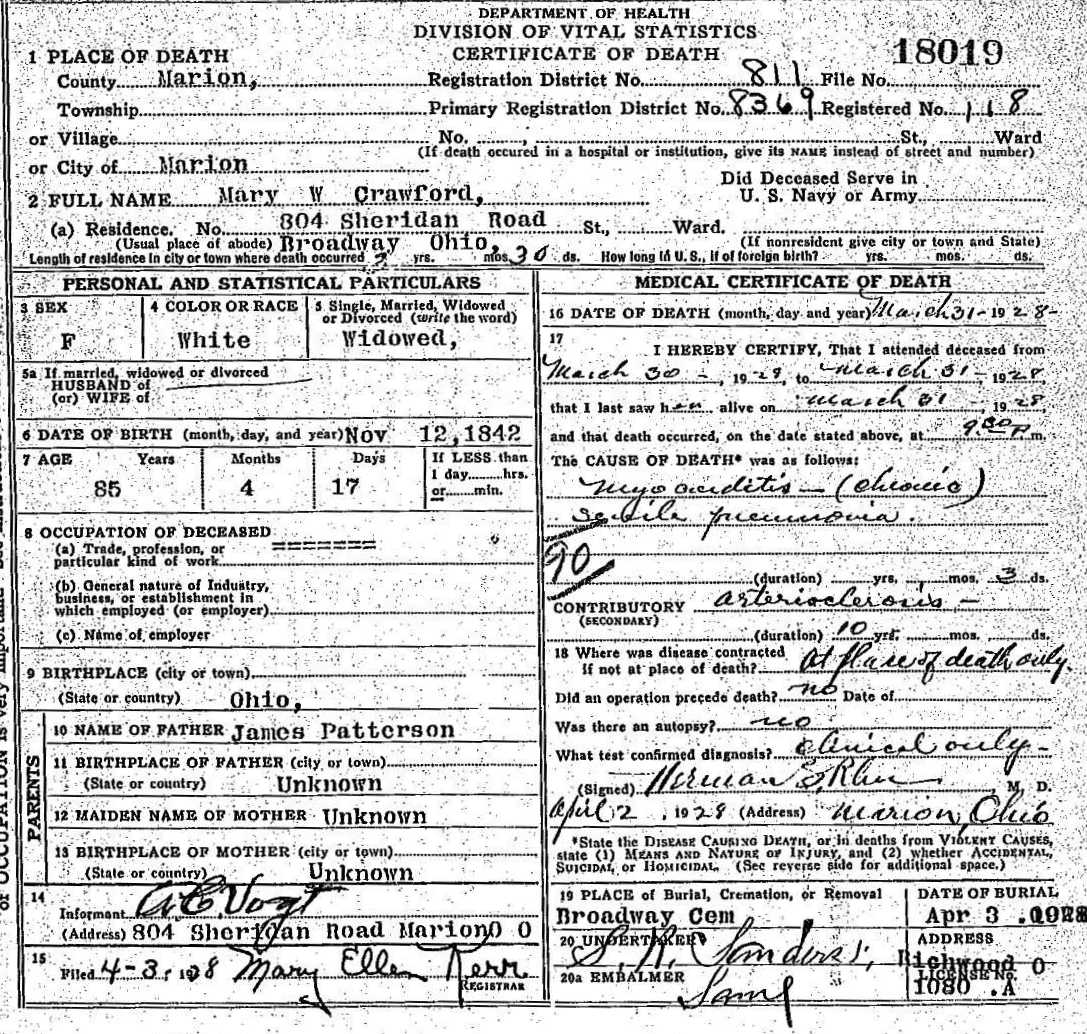 DEPARTMENT OF HEALTH
DIVISION OF VITAL STATISTICS
CERTIFICATE OF DEATH
18019
1 PLACE OF DEATH
County Marion, Registration District No. 811 File No.
Township Primary Registration District No. 8369 Registered No. 118
or Village No. , St., Ward
(If death occured in a hospital or institution, give its NAME instead of street and number)
or City of Marion
Did Deceased Serve in
U. S. Navy or Army
2 FULL NAME Mary W Crawford,
(a) Residence. No. 804 Sheridan Road St., Ward.
(Usual place of abode) Broadway Ohio, (If nonresident give city or town and State)
Length of residence in city or town where death occurred yrs. mos. 30 ds. How long in U.S., if of foreign birth? yrs. mos. ds.
PERSONAL AND STATISTICAL PARTICULARS
3 SEX
F
4 COLOR OR RACE
White
5 Single, Married, Widowed
or Divorced (write the word)
Widowed,
5a If married, widowed or divorced
HUSBAND of
(or) WIFE of
6 DATE OF BIRTH (month, day, and year) Nov 12,1842
7 AGE Years Months Days If LESS than
1 day......hrs.
or......min.
85 4 17
8 OCCUPATION OF DECEASED
(a) Trade, profession, or
particular kind of work =======
(b) General nature of Industry,
business, or establishment in
which employed (or employer)
(c) Name of employer
9 BIRTHPLACE (city or town)
(State or country) Ohio,
PARENTS
10 NAME OF FATHER James Patterson
11 BIRTHPLACE OF FATHER (city or town)
(State or country) Unknown
12 MAIDEN NAME OF MOTHER Unknown
13 BIRTHPLACE OF MOTHER (city or town)
(State or country) Unknown
14
Informant A.C. Vogt
(Address) 804 Sheridan Road Marion O
15
Filed 4-3, 1928 Mary Ellen Kerr
REGISTRAR
MEDICAL CERTIFICATE OF DEATH
16 DATE OF DEATH (month, day and year) March 31- 1928-
17
I HEREBY CERTIFY, That I attended deceased from
March 30 -, 1928, to March 31-, 1928,
that I last saw her alive on March 31 - 1928
and that death occurred, on the date stated above, at 9:30 P.m.
The CAUSE OF DEATH* was as follows:
Myocarditis - (chronic)
senile pneumonia.
90
(duration) yrs. mos. 3 ds.
CONTRIBUTORY arteriosclerosis -
(SECONDARY)
(duration) 10 yrs. mos. ds.
18 Where was disease contracted
if not at place of death? At place of death only.
Did an operation precede death? no Date of
Was there an autopsy? no
What test confirmed diagnosis? clinical only -
(Signed) Herman S. M. D.
April 2, 1928 (Address) Marion, Ohio
*State the DISEASE CAUSING DEATH, or in deaths from VIOLENT CAUSES,
state (1) MEANS AND NATURE OF INJURY, and (2) whether ACCIDENTAL,
SUICIDAL, or HOMICIDAL. (See reverse side for additional space.)
19 PLACE of Burial, Cremation, or Removal
Broadway Cem
DATE OF BURIAL
Apr 3 1928
20 UNDERTAKER
S. R. Sanders,
ADDRESS
Richwood O
20a EMBALMER
Same
LICENSE No.
1080 .A
or OCCUPATION is very important.